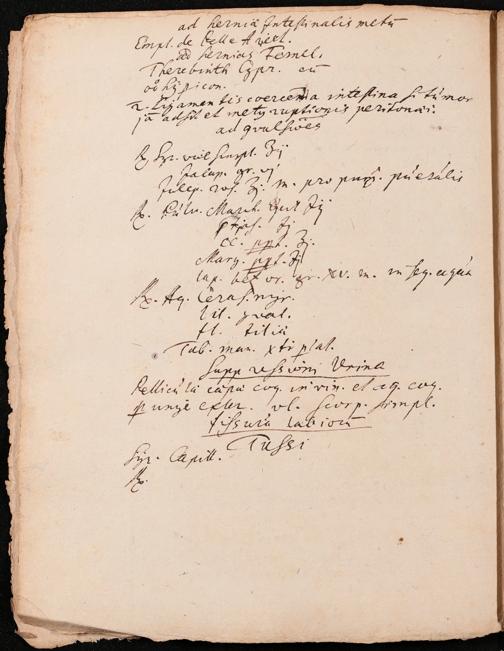 ad herniã Intestinalis metũ
Empl. de Pelle Ariet.
ad hernias Fernel.
Therebinth Cypr. cũ
oõ hypicon.
2. Ligamentis coercenda intestina si tumor
jã adsit et metus ruptionis peritonæi.
ad
℞ Syr. viol simpl. ℥ij
Jalap. gr. vj
Julep. ros. ℥j. m. pro purg. puerulis
℞. Pulv. March. ʒij
ʒj
CC. ppt. ʒj.
Marg. ppt. ʒj
lap. or. gr. xv. m. in seq. aqua
℞. Aq. Ceras. nigr.
lil. gval.
fl. tiliæ
Tab. man. xti plat.
Suppressioni Vrinæ
Pellicula capõ coq. in vin. et aq. coq.
p unge exter. ol. scorp. simpl.
fissura labiorũ
Tussi
Syr. Capill.
℞.